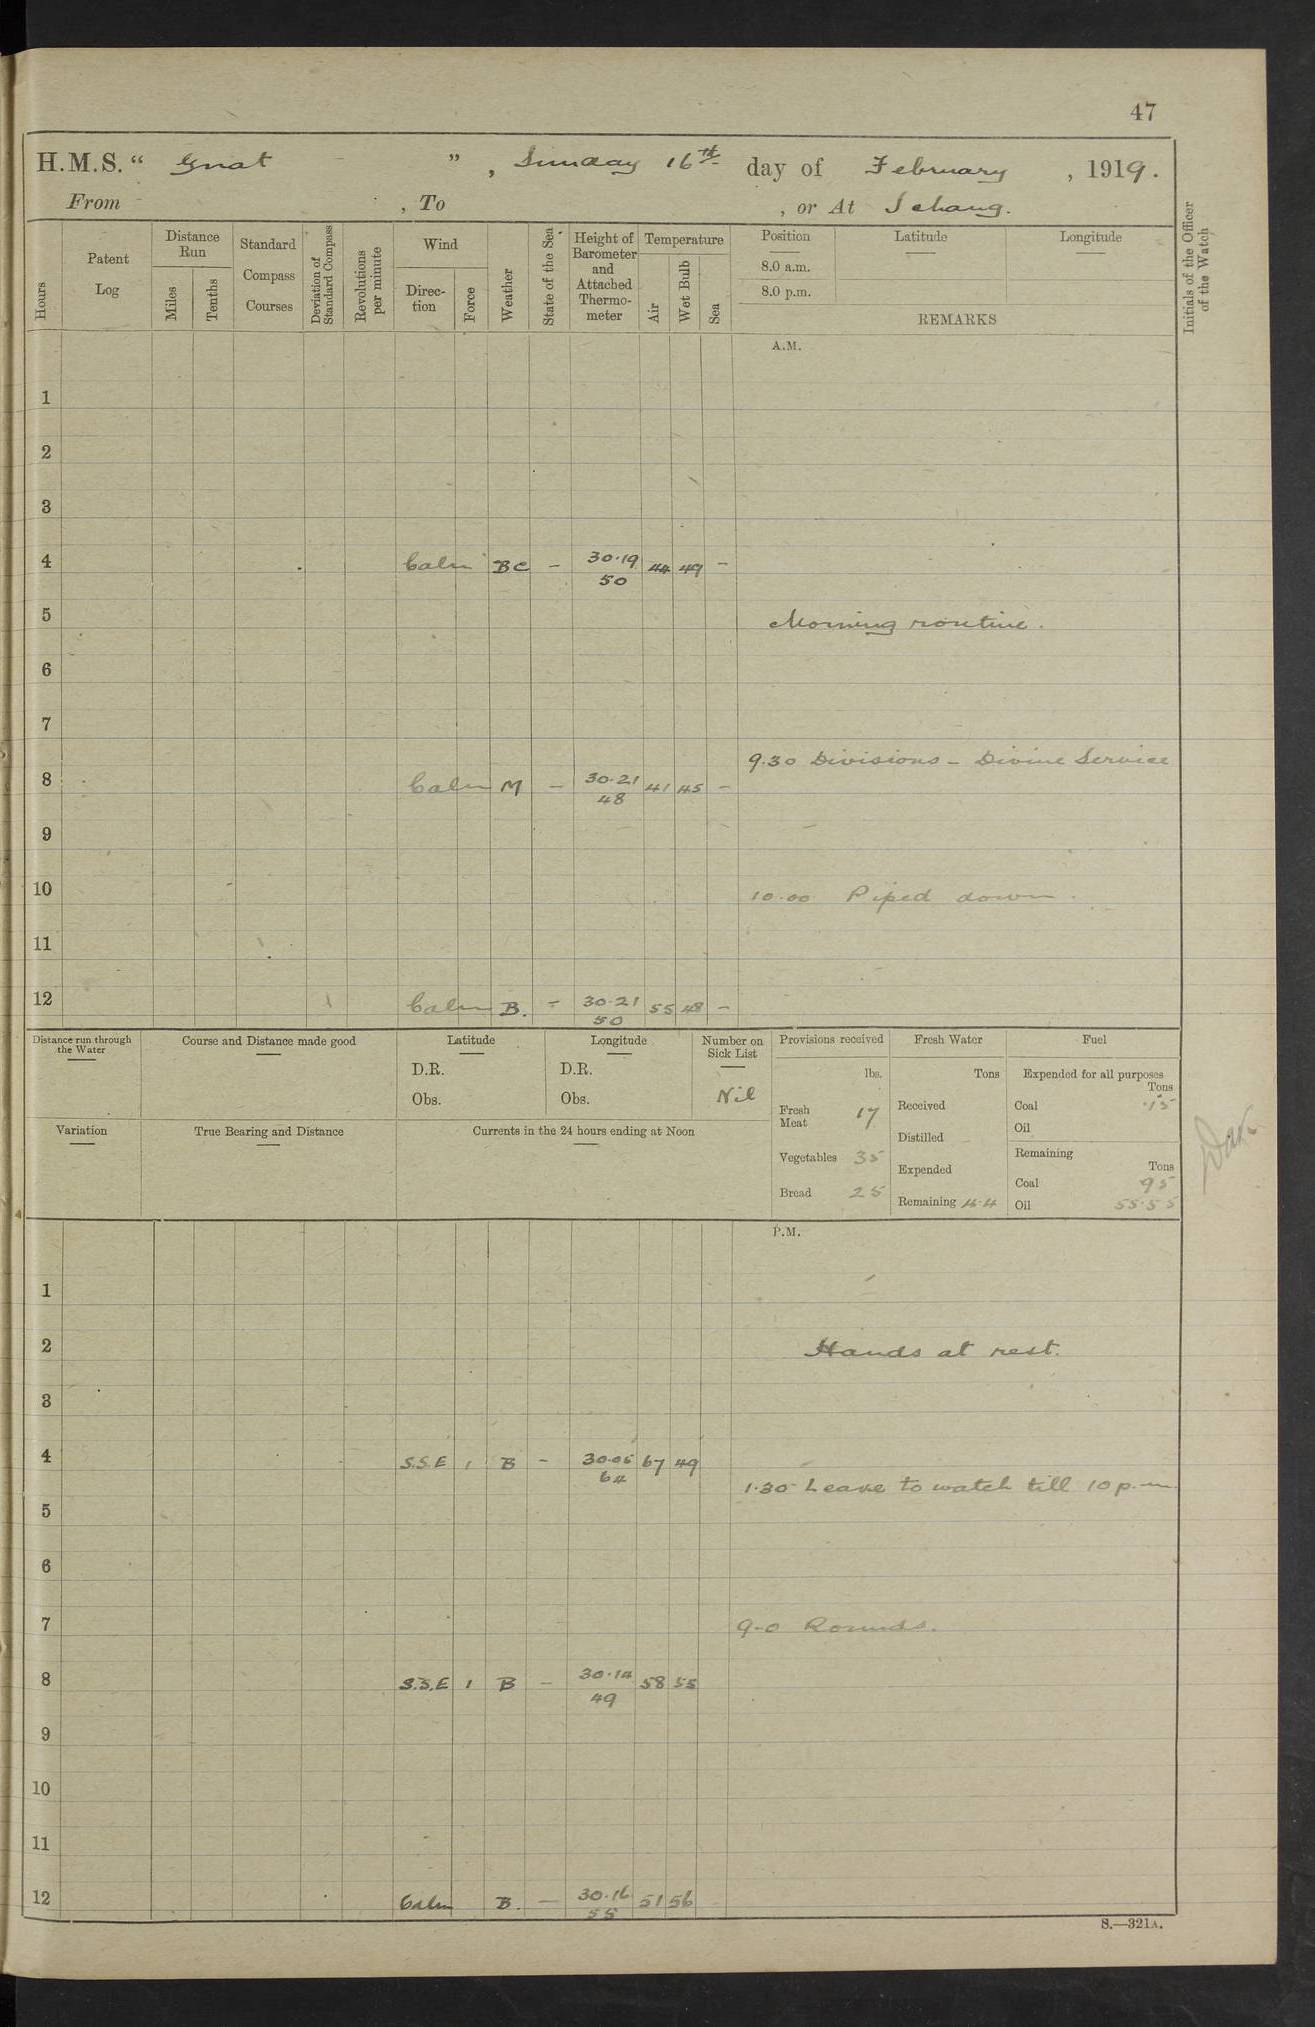 47
H.M.S. “ Gnat ” , Sunday 16th day of February , 1919.
From , To , or At Ichang.
Hours
Patent Log
Distance Run
Miles
Tenths
Standard Compass Courses
Deviation of Standard Compass
Revolutions per minute
Wind
Direc-tion
Force
Weather
State of the Sea
Height of Barometer and Attached Thermo-meter
Temperature
Air
Wet Bulb
Sea
Position
Latitude
Longitude
8.0 a.m.
8.0 p.m.
REMARKS
Initials of the Officer of the Watch
A.M.
1
2
3
4 Calm BC – 30.19 44 49 –
50
5 Morning routine.
6
7
9.30 Divisions – Divine Service
8 Calm M – 30.21 41 45 –
48
9
10 10.00 Piped down.
11
12 Calm B. – 30.21 55 48 –
50
Distance run through the Water
Course and Distance made good
Latitude
D.R.
Obs.
Longitude
D.R.
Obs.
Number on Sick List
Nil
Provisions received
lbs.
Fresh Meat 17
Vegetables 35
Bread 25
Fresh Water
Tons
Received
Distilled
Expended
Remaining 4.4
Fuel
Expended for all purposes
Tons
Coal .15
Oil
Remaining
Tons
Coal 95
Oil 55.55
Variation
True Bearing and Distance
Currents in the 24 hours ending at Noon
P.M.
1
2 Hands at rest.
3
4 S.S.E 1 B – 30.05 67 49
64
1.30 Leave to watch till 10 p.m.
5
6
7 9-0 Rounds.
8 S.S.E 1 B – 30.14 58 55
49
9
10
11
12 Calm B. – 30.16 51 56
55
S.—321A.